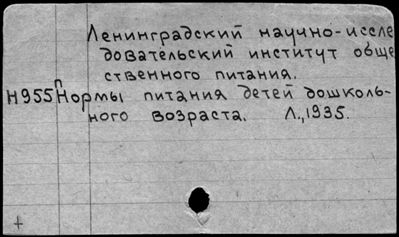 Ленинградский научно-иссле
довательский институт обще
ственного питания.
Н955п Нормы питания детей дошколь-
ного возраста. Л.,1935.
+